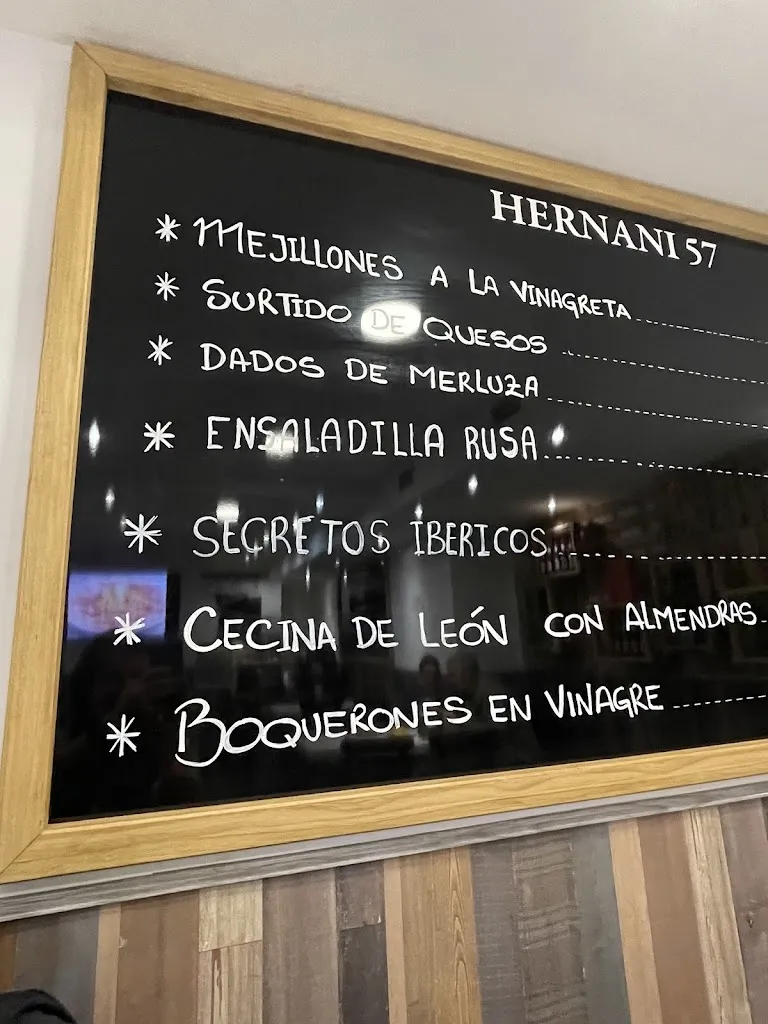 HERNANI 57
* MEJILLONES A LA VINAGRETA
* SURTIDO DE QUESOS
* DADOS DE MERLUZA
* ENSALADILLA RUSA
* SECRETOS IBERICOS
* CECINA DE LEÓN CON ALMENDRAS
* BOQUERONES EN VINAGRE